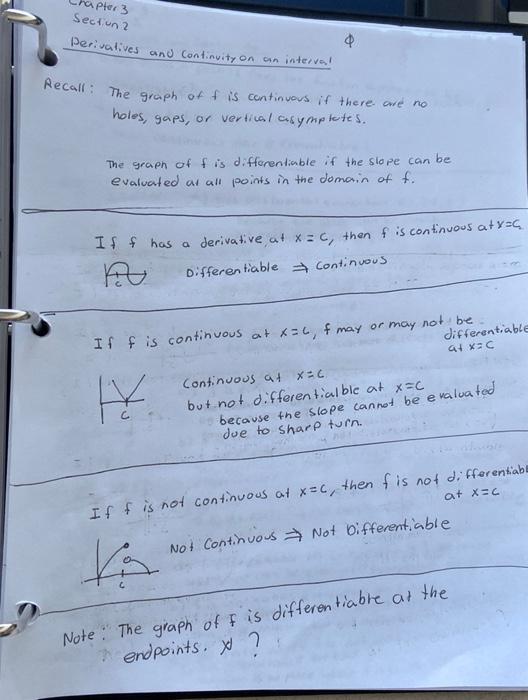 Chapter 3
Section 2
Derivatives and Continuity on an interval
Recall: The graph of f is continuous if there are no
holes, gaps, or vertical asymptotes.
The graph of f is differentiable if the slope can be
evaluated at all points in the domain of f.
If f has a derivative at x = c, then f is continuous at x=c
c
Differentiable ⇒ Continuous
If f is continuous at x=c, f may or may not be
differentiable
at x=c
c
Continuous at x=c
but not differentialble at x=c
because the slope cannot be evaluated
due to sharp turn.
If f is not continuous at x=c, then f is not differentiable
at x=c
c
Not Continuous ⇒ Not Differentiable
Note: The graph of f is differentiable at the
endpoints. ?